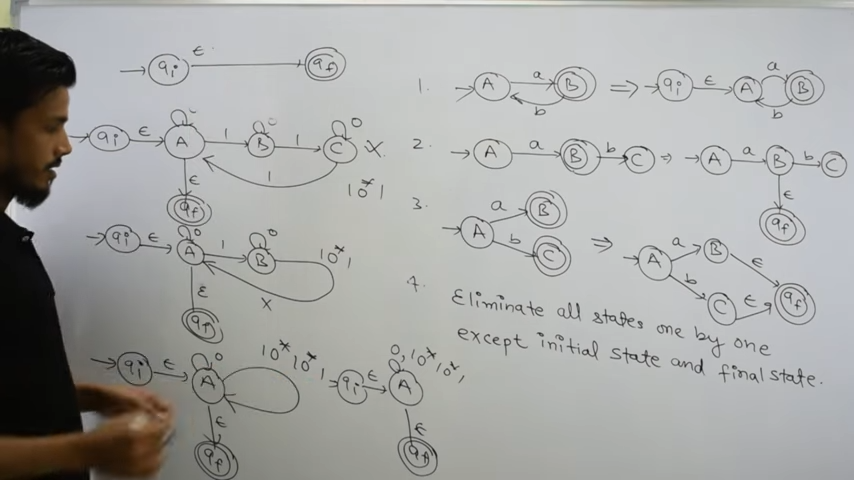 qi ε qf
qi ε A 0 1 B 0 1 C 0 X
1
ε
10*1
qf
qi ε A 0 1 B 0 10*1
ε X
qf
qi ε A 0 10*10*1
ε
qf
qi ε A 0, 10*10*1
ε
qf
1. A a B b ⇒ qi ε A a B b
2. A a B b C ⇒ A a B b C
ε
qf
3. A a B b C ⇒ A a B b C ε ε qf
4. Eliminate all states one by one
except initial state and final state.